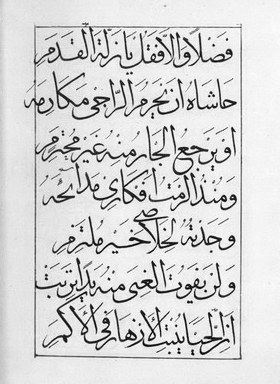 فضلا والا فقل يا زلة القدم
حاشاه ان يحرم الراجي مكارمه
او يرجع الجار منه غير محترم
ومنذ الزمت افكاري مدائحه
وجدته لخلاصي خير ملتزم
ولن يفوت الغنى منه يدا تربت
ان الحيا ينبت الازهار في الاكم